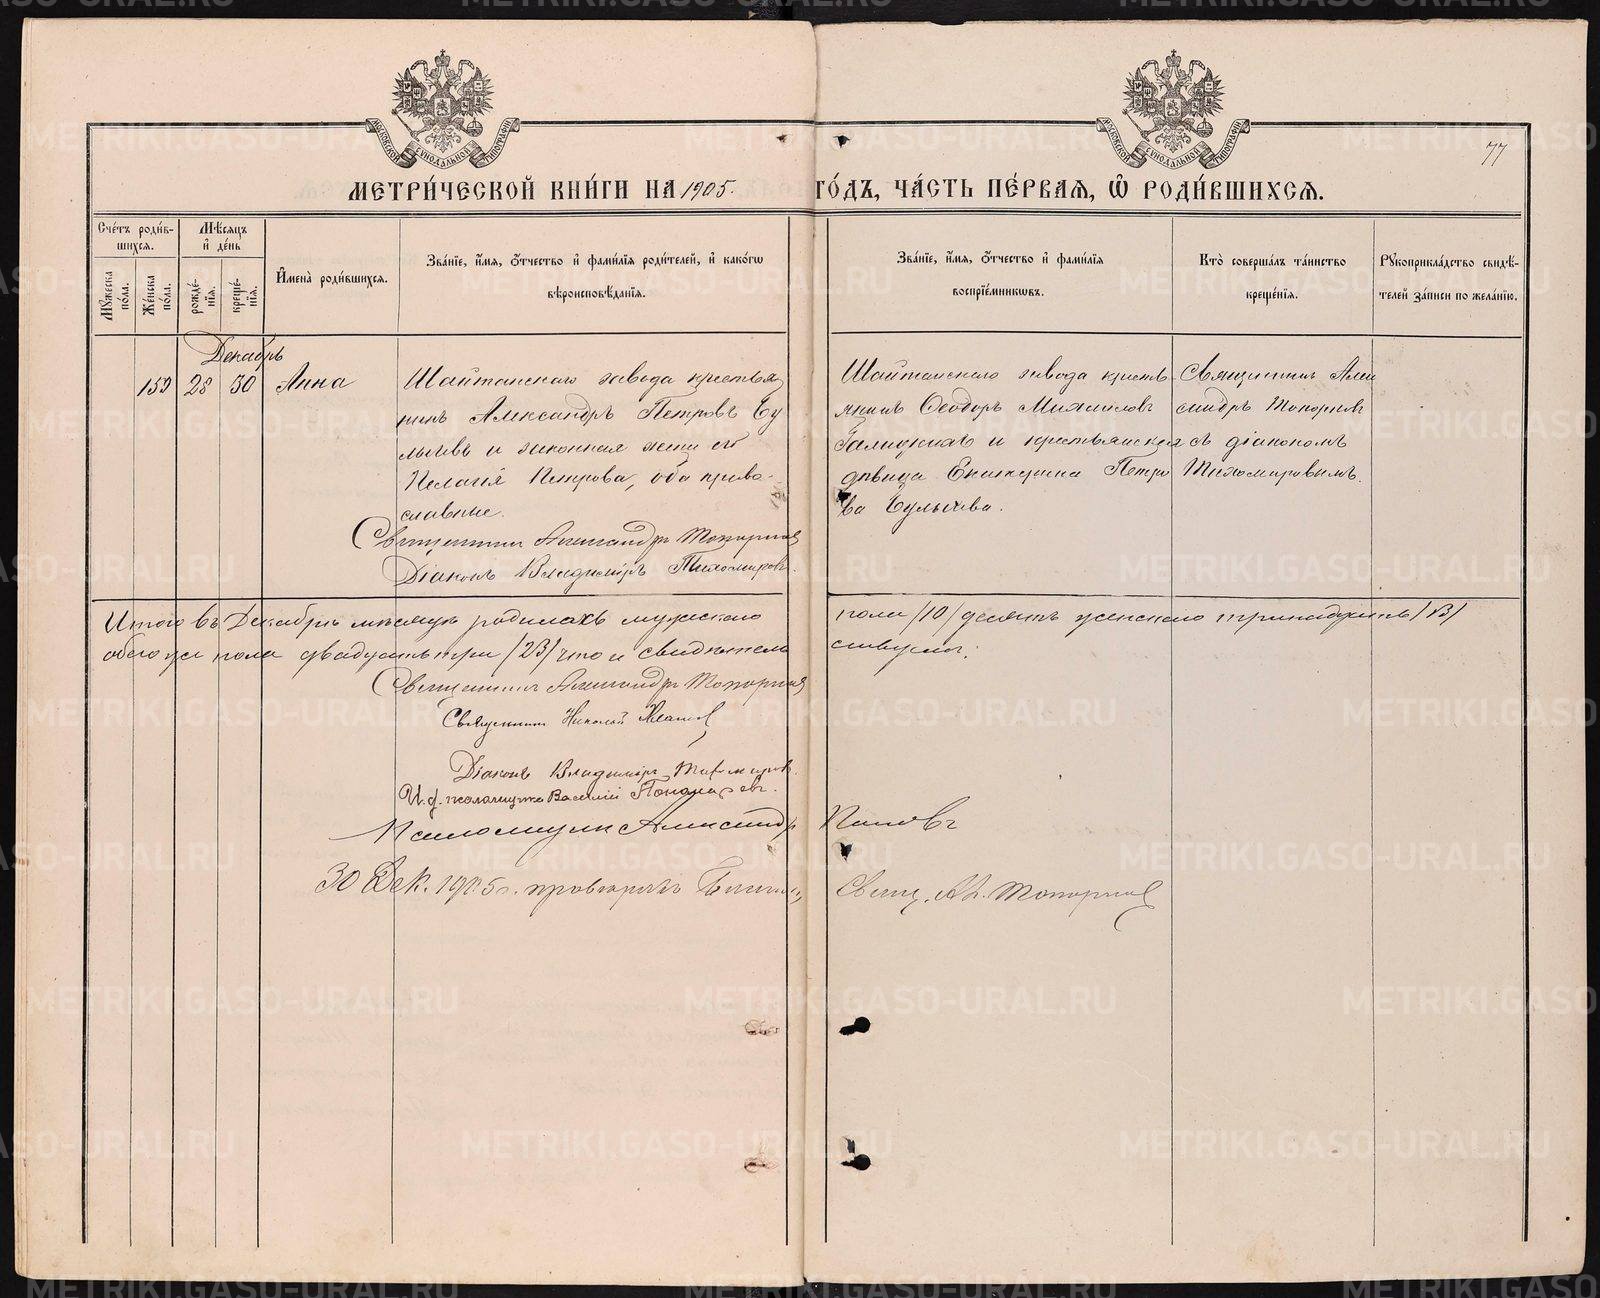 МОСКОВСКОЙ СУНОДАЛЬНОЙ ТИПОГРАФІИ
МОСКОВСКОЙ СУНОДАЛЬНОЙ ТИПОГРАФІИ
77
МЕТРИ́ЧЕСКОЙ КНИ́ГИ НА 1905. ГО́ДЪ, ЧА́СТЬ ПЕ́РВАЯ, Ѿ РОДИ́ВШИХСЯ.
Сче́тъ роди́вшихся.
Му́жеска по́ла.
Же́нска по́ла.
Мѣ́сяцъ и҆ де́нь
рожде́нїя.
креще́нїя.
И҆мена̀ роди́вшихся.
Зва́нїе, и҆́мя, ѻ҆́тчество и҆ фами́лїя роди́телей, и҆ како́гѡ
вѣроисповѣ́данїя.
Зва́нїе, и҆́мя, ѻ҆́тчество и҆ фами́лїя
воспрїе́мникѡвъ.
Кто̀ соверша́лъ та́инство
креще́нїя.
Рукоприкла́дство свидѣ́-
телей за́писи по жела́нїю.
Декабрь
152 28 30 Анна
Шайтанскаго завода крестья
нинъ Александръ Петровъ Бу
лычевъ и законная жена его
Пелагія Петрова, оба право-
славные.
Священникъ Александръ Топорковъ
Діаконъ Владиміръ Тихомировъ.
Шайтанскаго завода кресть
янинъ Ѳеодоръ Михаиловъ
и крестьянская
дѣвица Екатерина Петро
ва Булычева.
Священникъ Алек
сандръ Топорковъ
съ діакономъ
Тихомировымъ.
Итого въ Декабрѣ мѣсяцѣ родилось мужскаго пола /10/ десять женскаго тринадцать /13/
обоего же пола двадцать три /23/ что и свидѣтель
ствуемъ:
Священникъ Александръ Топорковъ
Священникъ Николай
Діаконъ Владиміръ Тихомировъ.
И. д. псаломщика Василій Пономаревъ.
Псаломщикъ Александръ Поповъ
30 Дек. 1905 г. провѣрялъ Свящ. Ал. Топорковъ
METRIKI.GASO-URAL.RU